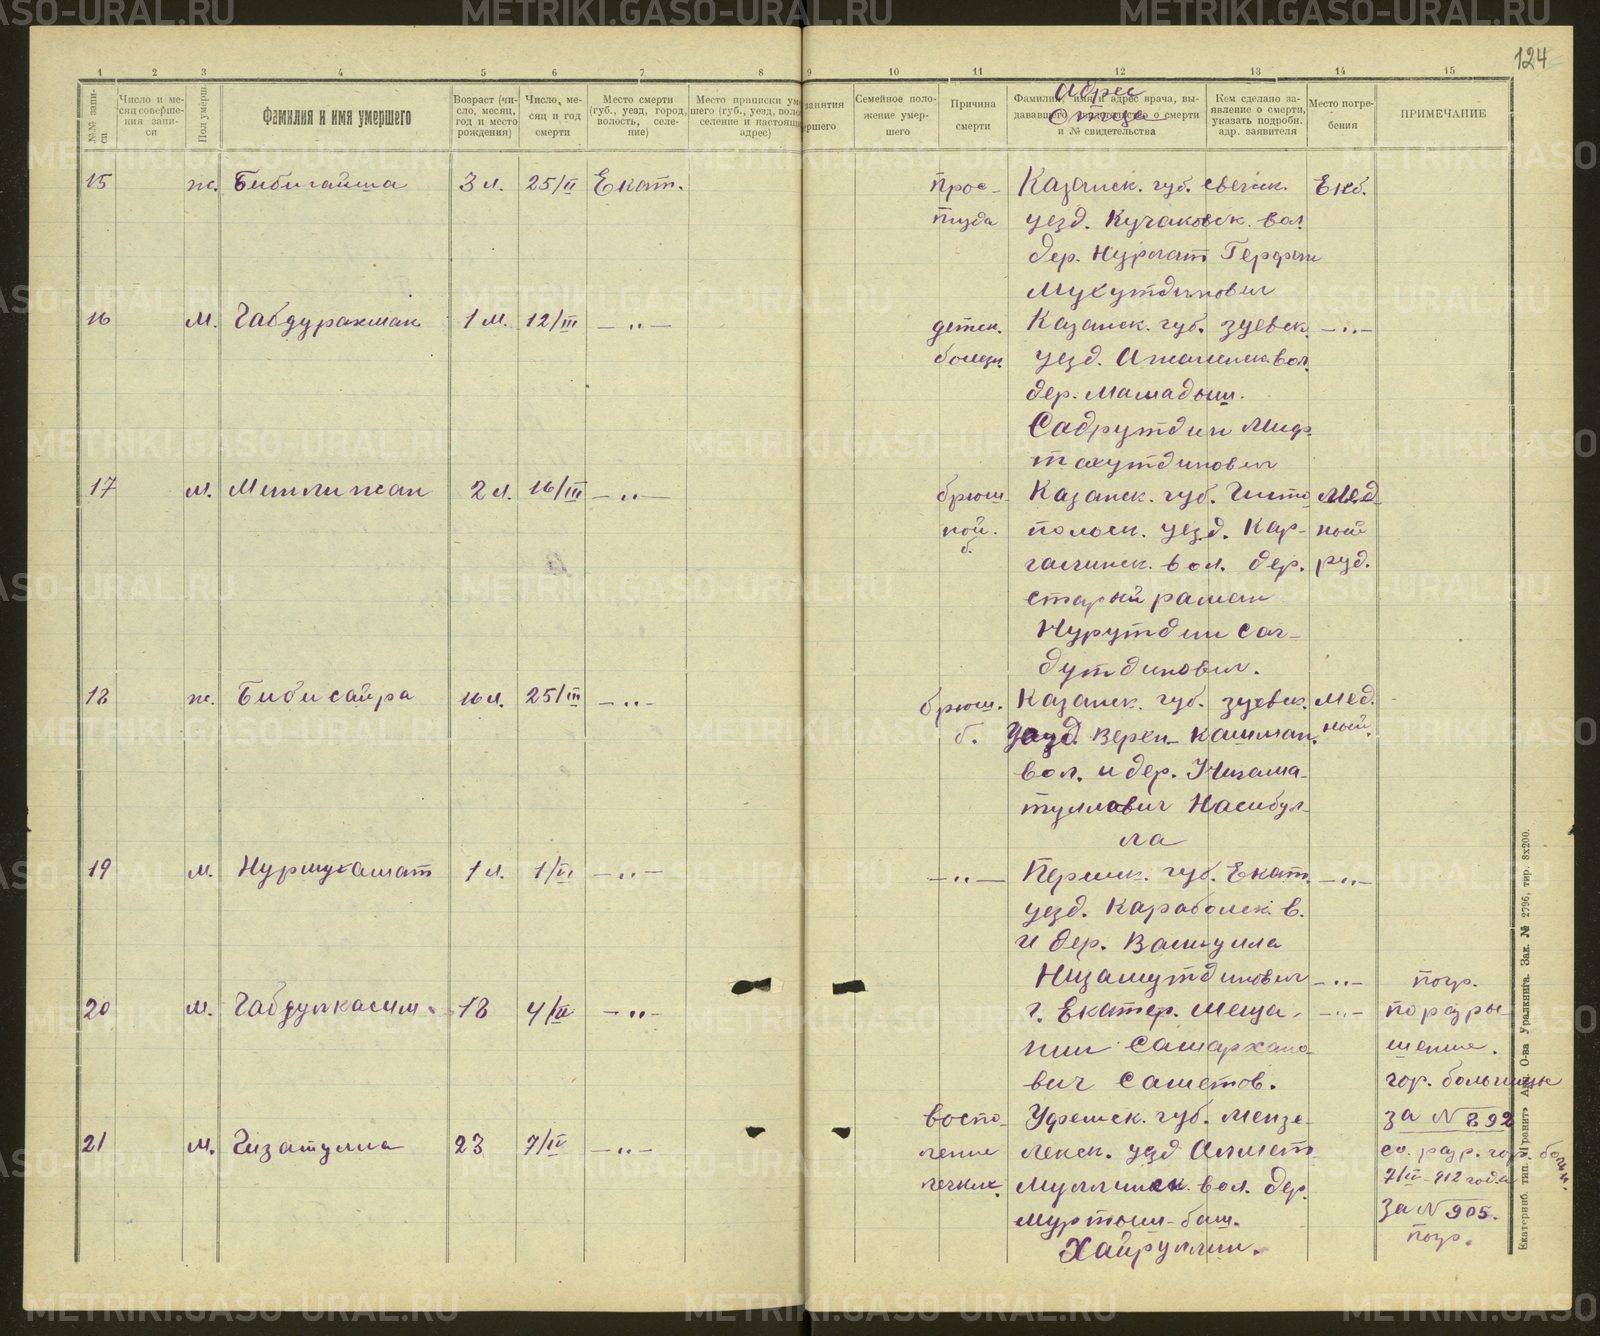 124
1 2 3 4 5 6 7 8 9 10 11 12 13 14 15
№№ записи
Число и месяц совершения записи
Пол умерш.
Фамилия и имя умершего
Возраст (число, месяц, год и место рождения)
Число, месяц и год смерти
Место смерти (губ., уезд, город, волость, селение)
Место приписки ум
шего (губ., уезд, воло
селение и настоящи
адрес)
занятия
ершего
Семейное положение умершего
Причина смерти
адрес
отца
Фамилия, имя и адрес врача, выдававшего свидетельство о смерти и № свидетельства
Кем сделано заявление о смерти, указать подробн. адр. заявителя
Место погребения
ПРИМЕЧАНИЕ
15 ж. Бибигайша 3 л. 25/II Екат.
Прос-
туда
Казанск. губ. свечск. Екб.
уезд. Кугаковск. вол.
дер. Нурлат
Мухутдинович
16 М. Габдурахман 1 м. 12/III —〃—
детск.
болезн.
Казанск. губ. зуевск. —〃—
уезд. вол.
дер. Мамадыш.
Садрутдин Миф-
тахутдинович
17 м. Минлижан 2 л. 16/III —〃—
брюш-
ной.
б.
Казанск. губ. Чисто Мед-
польск. уезд. Кар- ной
галинск. вол. дер. руд.
старый ромаш
Нурутдин Саг-
дутдинович.
18 ж. Бибисайра 16 л. 25/III —〃—
брюш.
б.
Казанск. губ. зуевск. Мед.
Уезд. Верхн- Кашман. ной.
вол. и дер. Низама-
туллович Насибул-
ла
19 м. Нурмухамат 1 л. 1/IV —〃—
—〃— Пермск. губ. Екат. —〃—
уезд. Караболск. в.
и дер. Валиулла
Низамутдинович —〃—
20 м. Габдулкасим 18 4/IV —〃—
г. Екатер. меща- —〃—
нин Самархано-
вич Саметов.
погр.
по разры
шение.
гор. больницы
за № 892
21 м. Гизатулла 23 7/IV —〃—
воспа-
ление
легких.
Уфимск. губ. Мензе-
лекск. уезд Алмет
Муллинск. вол. дер.
Муртыш-баш.
Хайруллин.
со. разр. гор. больн.
7/IV-912 года
за № 905.
погр.
Екатеринб. тип. «Гранит» Акц. О-ва Уралкнига. Зак. № 2796, тир. 8х200.
METRIKI.GASO-URAL.RU